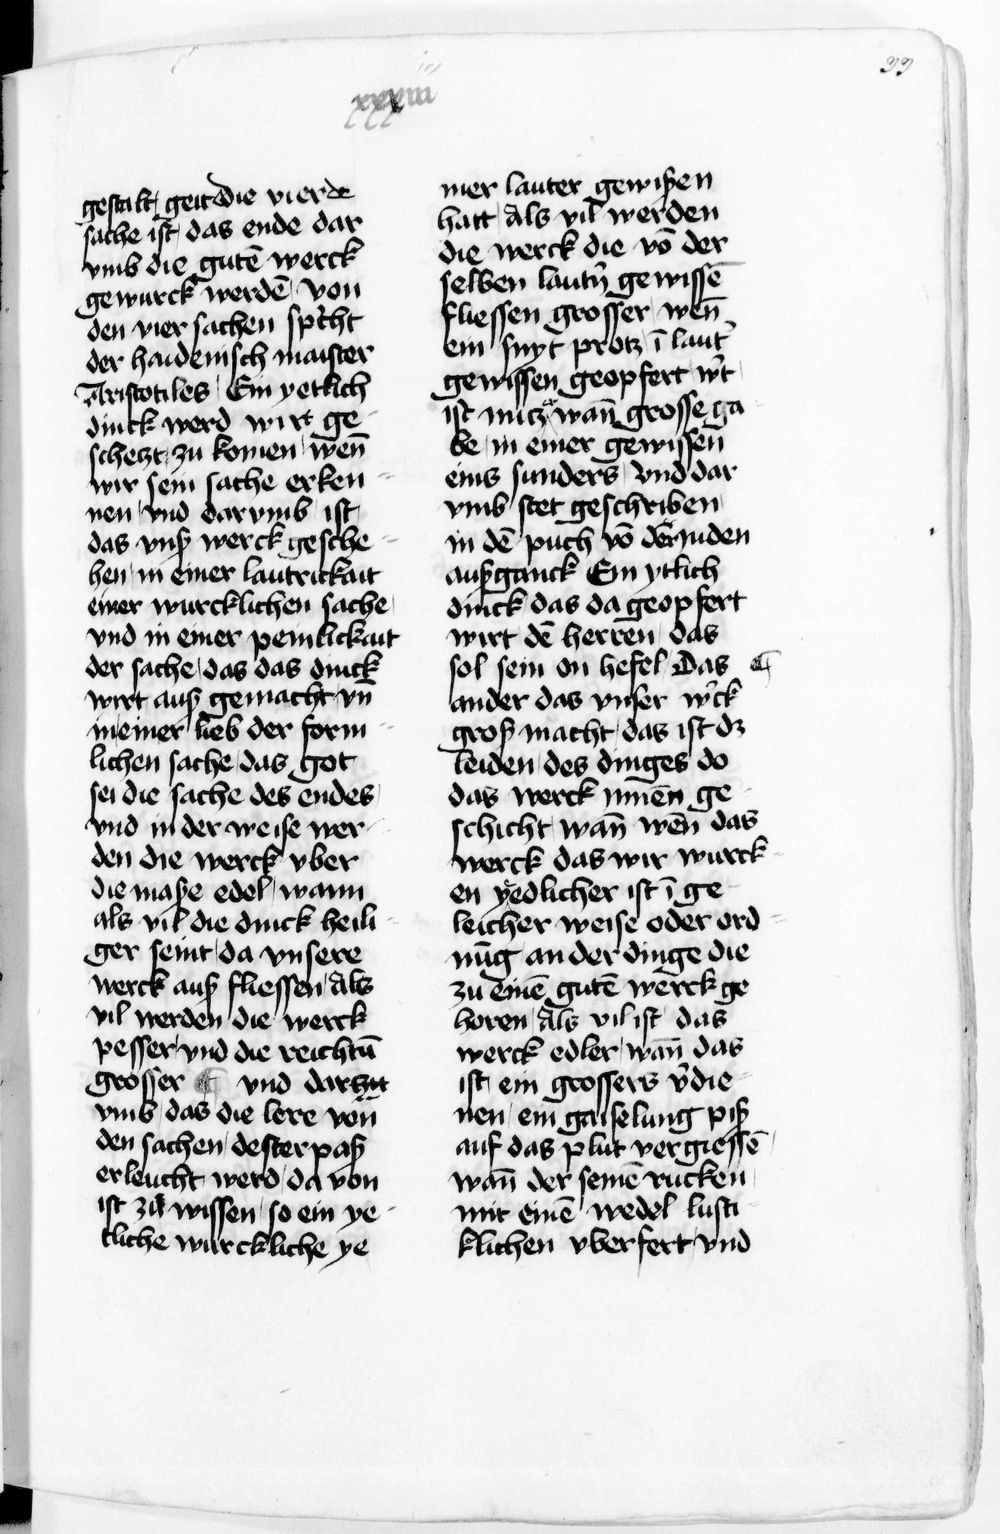 33
xxxiii
gestalt geit die vierde
sache ist das ende dar
vmb die gutē werck
gewurck werdē von
den vier sachen spͤcht
der haidenisch maister
Aristotiles Ein yetlich
dinck werd wirt ge
schetzt zu komen wen̄
wir sein sache erken
nen vnd darvmb ist
das vnß werck gesche
hen in einer lautrickait
einer wurcklichen sache
vnd in einer peinlickait
der sache das das dinck
wirt auß gemacht vn̄
in einer lieb der form
lichen sache das got
sei die sache des endes
vnd in der weise wer
den die werck vber
die maße edel wann
als vil die dinck heili
ger seint da vnsere
werck auß fliessen Als
vil werden die werck
pesser vnd die reichtū
grosser vnd dar
vmb das die lere von
den sachen dester paß
erleucht werd da von
ist zu wissen so ein ye
tliche wurckliche ye
ner lauter gewißen
hatt Als vil werden
die werck die vō der
selben laut᷑ gewissē
fliessen grosser wen̄
ein snyt protz ī laut᷑
gewissen geopfert w᷑t
ist nutz wan̄ grosse ga
be in einer gewissen
eins sunders vnd dar
vmb stet geschriben
in dē puch vō der iuden
außganck Ein ytlich
dinck das da geopfert
wirt dē herren das
sol sein on hefel Das
ander das vnser w᷑ck
groß macht das ist dz
leiden des dinges do
das werck innen̄ ge
schicht wan̄ wen̄ das
werck das wir wurck
en yedlicher ist ī ge
leicher weise oder ord
nūg an der dinge die
zu einē gutē werck ge
horen Als vil ist das
werck edler wan̄ das
ist ein grossers v᷑die
nen ein gaiselung piß
auf das plut vergiessē
wan̄ der seinē rucken
mit einē wedel lusti
klichen vberfert vnd